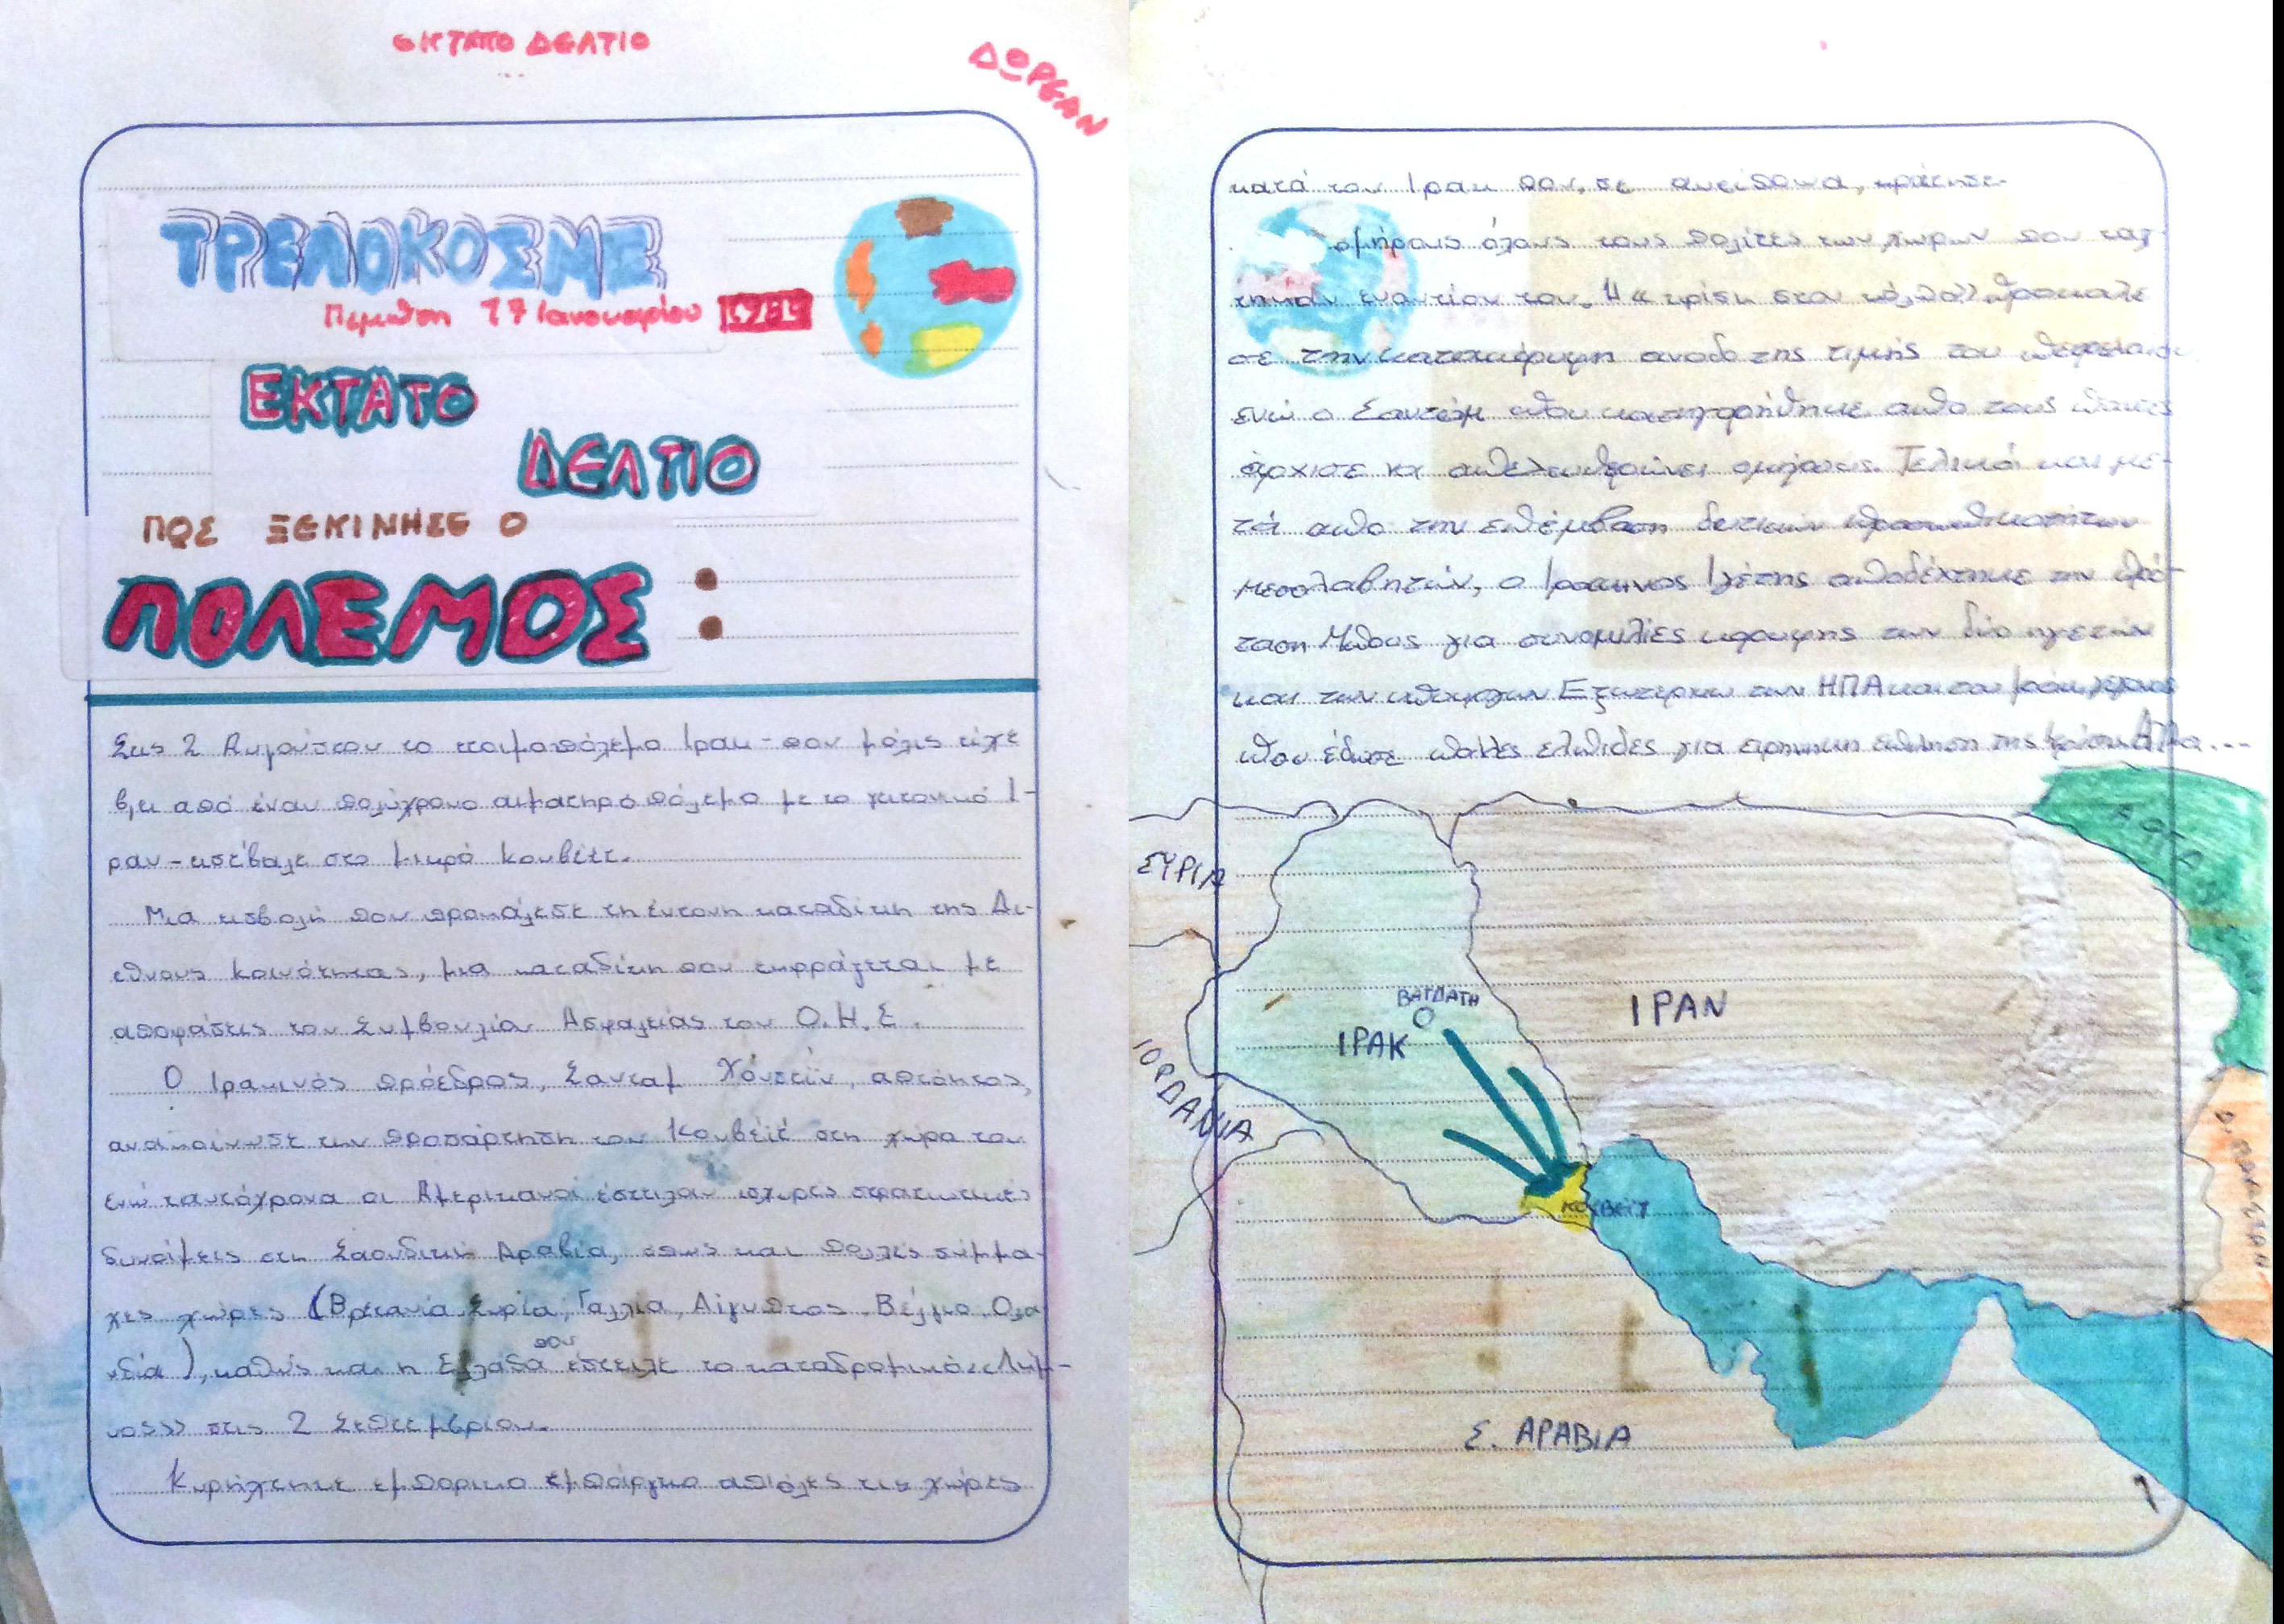 ΕΚΤΑΤΟ ΔΕΛΤΙΟ
ΔΩΡΕΑΝ
ΤΡΕΛΟΚΟΣΜΣ
Πεμπτη 17 Ιανουαρίου
ΕΚΤΑΤΟ
ΔΕΛΤΙΟ
ΠΩΣ ΞΕΚΙΝΗΣΕ Ο
ΠΟΛΕΜΟΣ :
Στις 2 Αυγούστου το ετοιμοπόλεμο Ιρακ - που μόλις είχε
βγει από έναν πολύχρονο αιματηρό πόλεμο με το γειτονικό Ι-
ραν - εισέβαλε στο μικρό Κουβέιτ.
Μια εισβολή που προκάλεσε τη έντονη καταδίκη της Δι-
εθνους Κοινότητας, μια καταδίκη που εκφράζεται με
αποφάσεις του Συμβουλία Ασφαλείας του Ο.Η.Ε.
Ο Ιρακινός πρόεδρος, Σανταμ Χόυσεϊν, απτόητος,
ανακοίνωσε την προσάρτηση του Κουβέιτ στη χώρα του
ενώ ταυτόχρονα οι Αμερικανοί έστειλαν ισχυρές στρατιωτικές
δυνάμεις στη Σαουδική Αραβία, όπως και πολλές σύμμα-
χες χώρες (Βρετανία, Συρία, Γαλλία, Αίγυπτος, Βέλγιο, Ολα
νδία), καθώς και η Ελλάδα που έστειλε το καταδρομικό «Λήμ-
νος» στις 2 Σεπτεμβρίου.
Κυρήχτηκε εμπορικο εμπάργκο απ' όλες τις χώρες
κατά του Ιρακ που, σε αντίποινα, κράτησε
ομήρους όλους τους πολίτες των χωρων που ταχ-
τηκαν εναντίον του. Η «κρίση στον κόλπο» προκαλε
σε την κατακόρυφη ανοδο της τιμής του πετρελαίου
ενώ ο Σανταμ που κατηγορήθηκε απο τους πάντες
άρχισε να απελευθερώνει ομήρους. Τελικά και με-
τά απο την επέμβαση δυτικών προσωπικοτήτων
μεσολαβητών, ο Ιρακινος ηγέτης αποδέχτηκε την πρό-
ταση Μπους για συνομιλίες κορυφης των δύο ηγετών
και των υπουργων Εξωτερικω των ΗΠΑ και του Ιρακ, γεγονος
που έδωσε πολλές ελπίδες για ειρηνικη επίλυση της κρίσης
ΣΥΡΙΑ
ΒΑΓΔΑΤΗ
ΙΡΑΚ
ΙΡΑΝ
ΙΟΡΔΑΝΙΑ
ΚΟΥΒΕΙΤ
Σ. ΑΡΑΒΙΑ